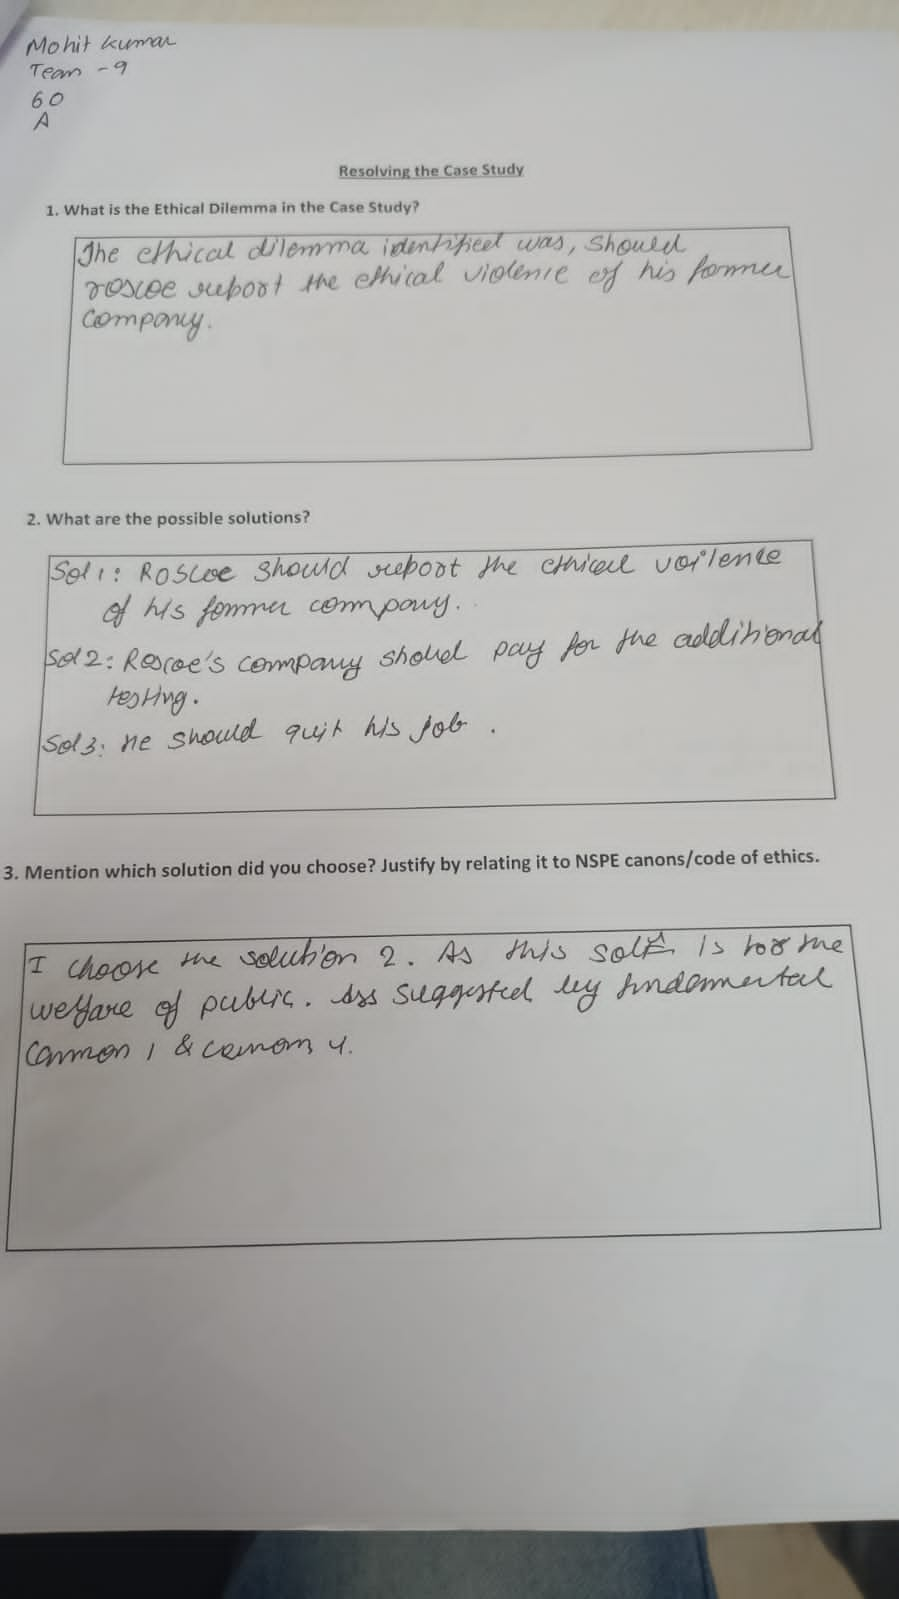 Mohit Kumar
Team - 9
60
A
Resolving the Case Study
1. What is the Ethical Dilemma in the Case Study?
The ethical dilemma identified was, should
roscoe report the ethical violenie of his former
company.
2. What are the possible solutions?
Sol 1: Roscoe should report the ethical voilence
of his former company.
Sol 2: Roscoe's company should pay for the additional
testing.
Sol 3: He should quit his job.
3. Mention which solution did you choose? Justify by relating it to NSPE canons/code of ethics.
I choose the solution 2. As this is for the
welfare of public. Ass suggested by fundamental
Canmon 1 & canon 4.